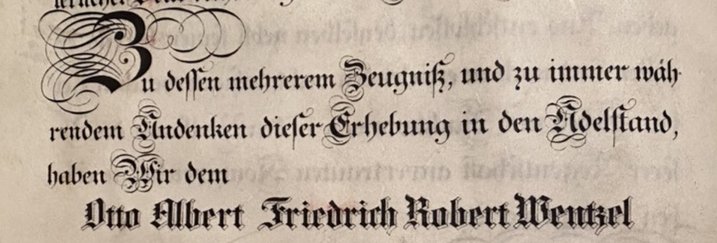 Zu dessen mehrerem Zeugniß, und zu immer wäh-
rendem Andenken dieser Erhebung in den Adelstand,
haben Wir dem
Otto Albert Friedrich Robert Wentzel